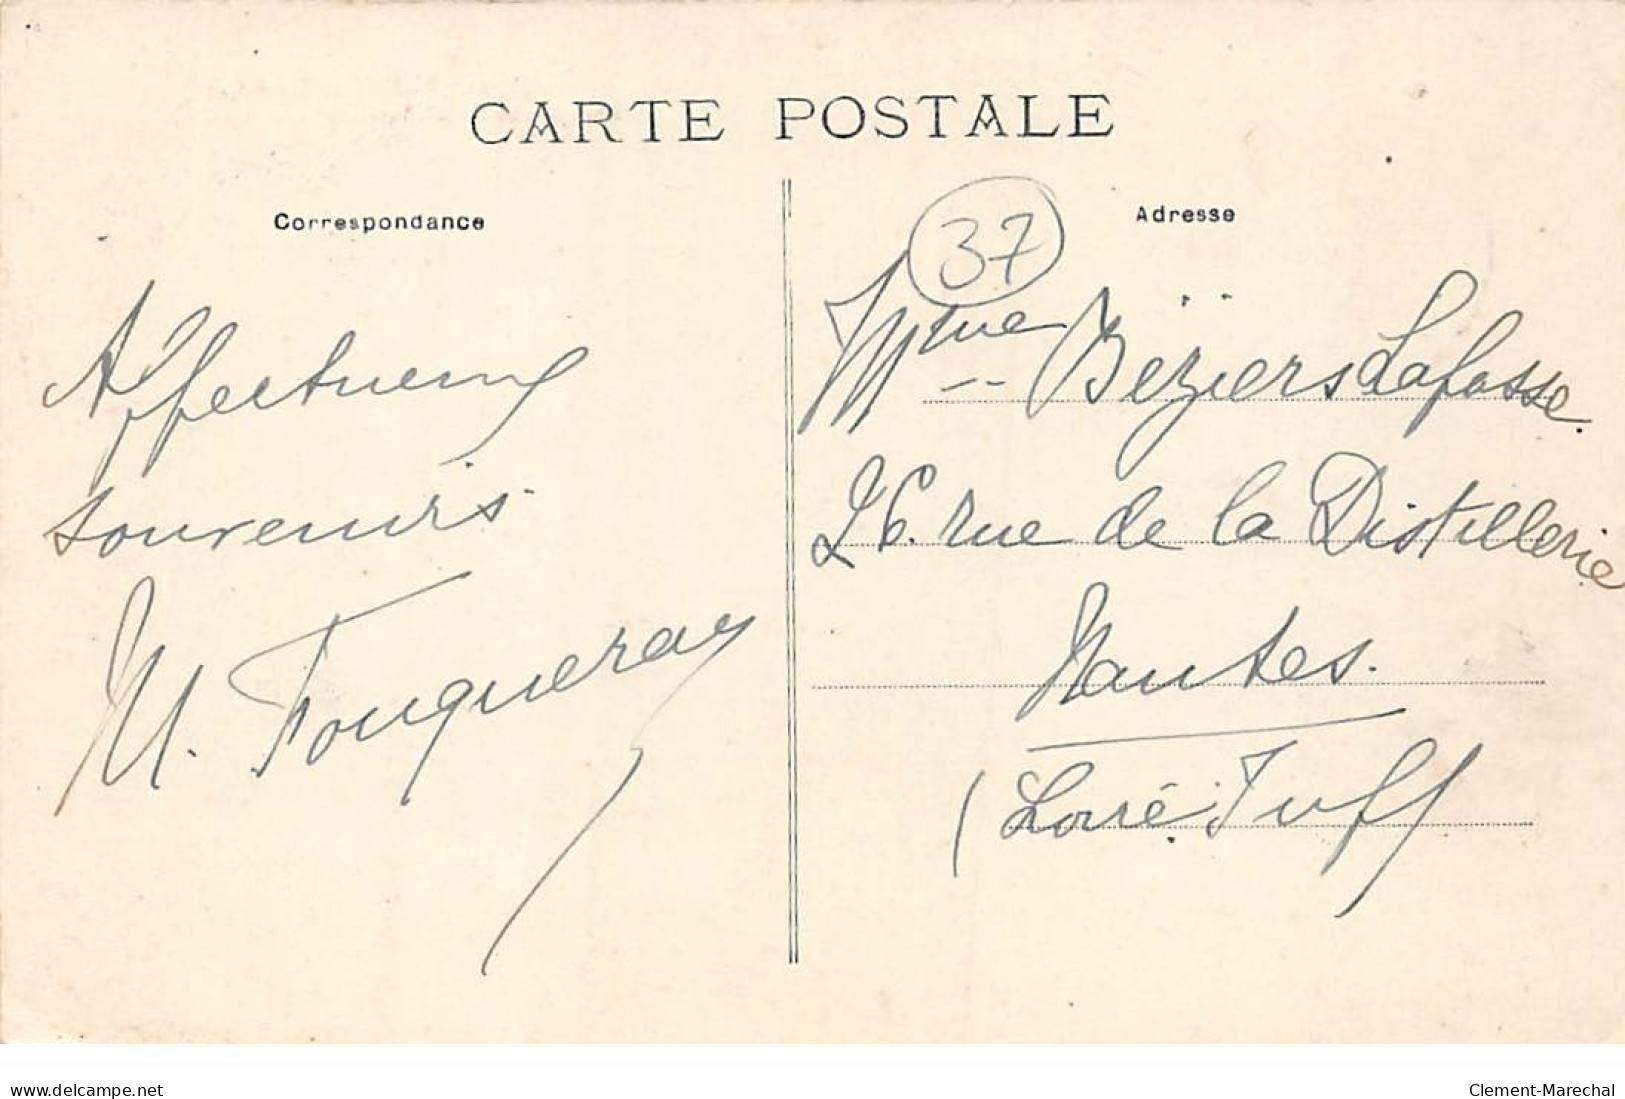 CARTE POSTALE
Correspondance
Affectueux
souvenirs
M. Fouqueray
37
Adresse
Mme Béziers Lafosse.
26. rue de la Distillerie
Nantes.
(Loire Inf)
www.delcampe.net
Clement-Marechal